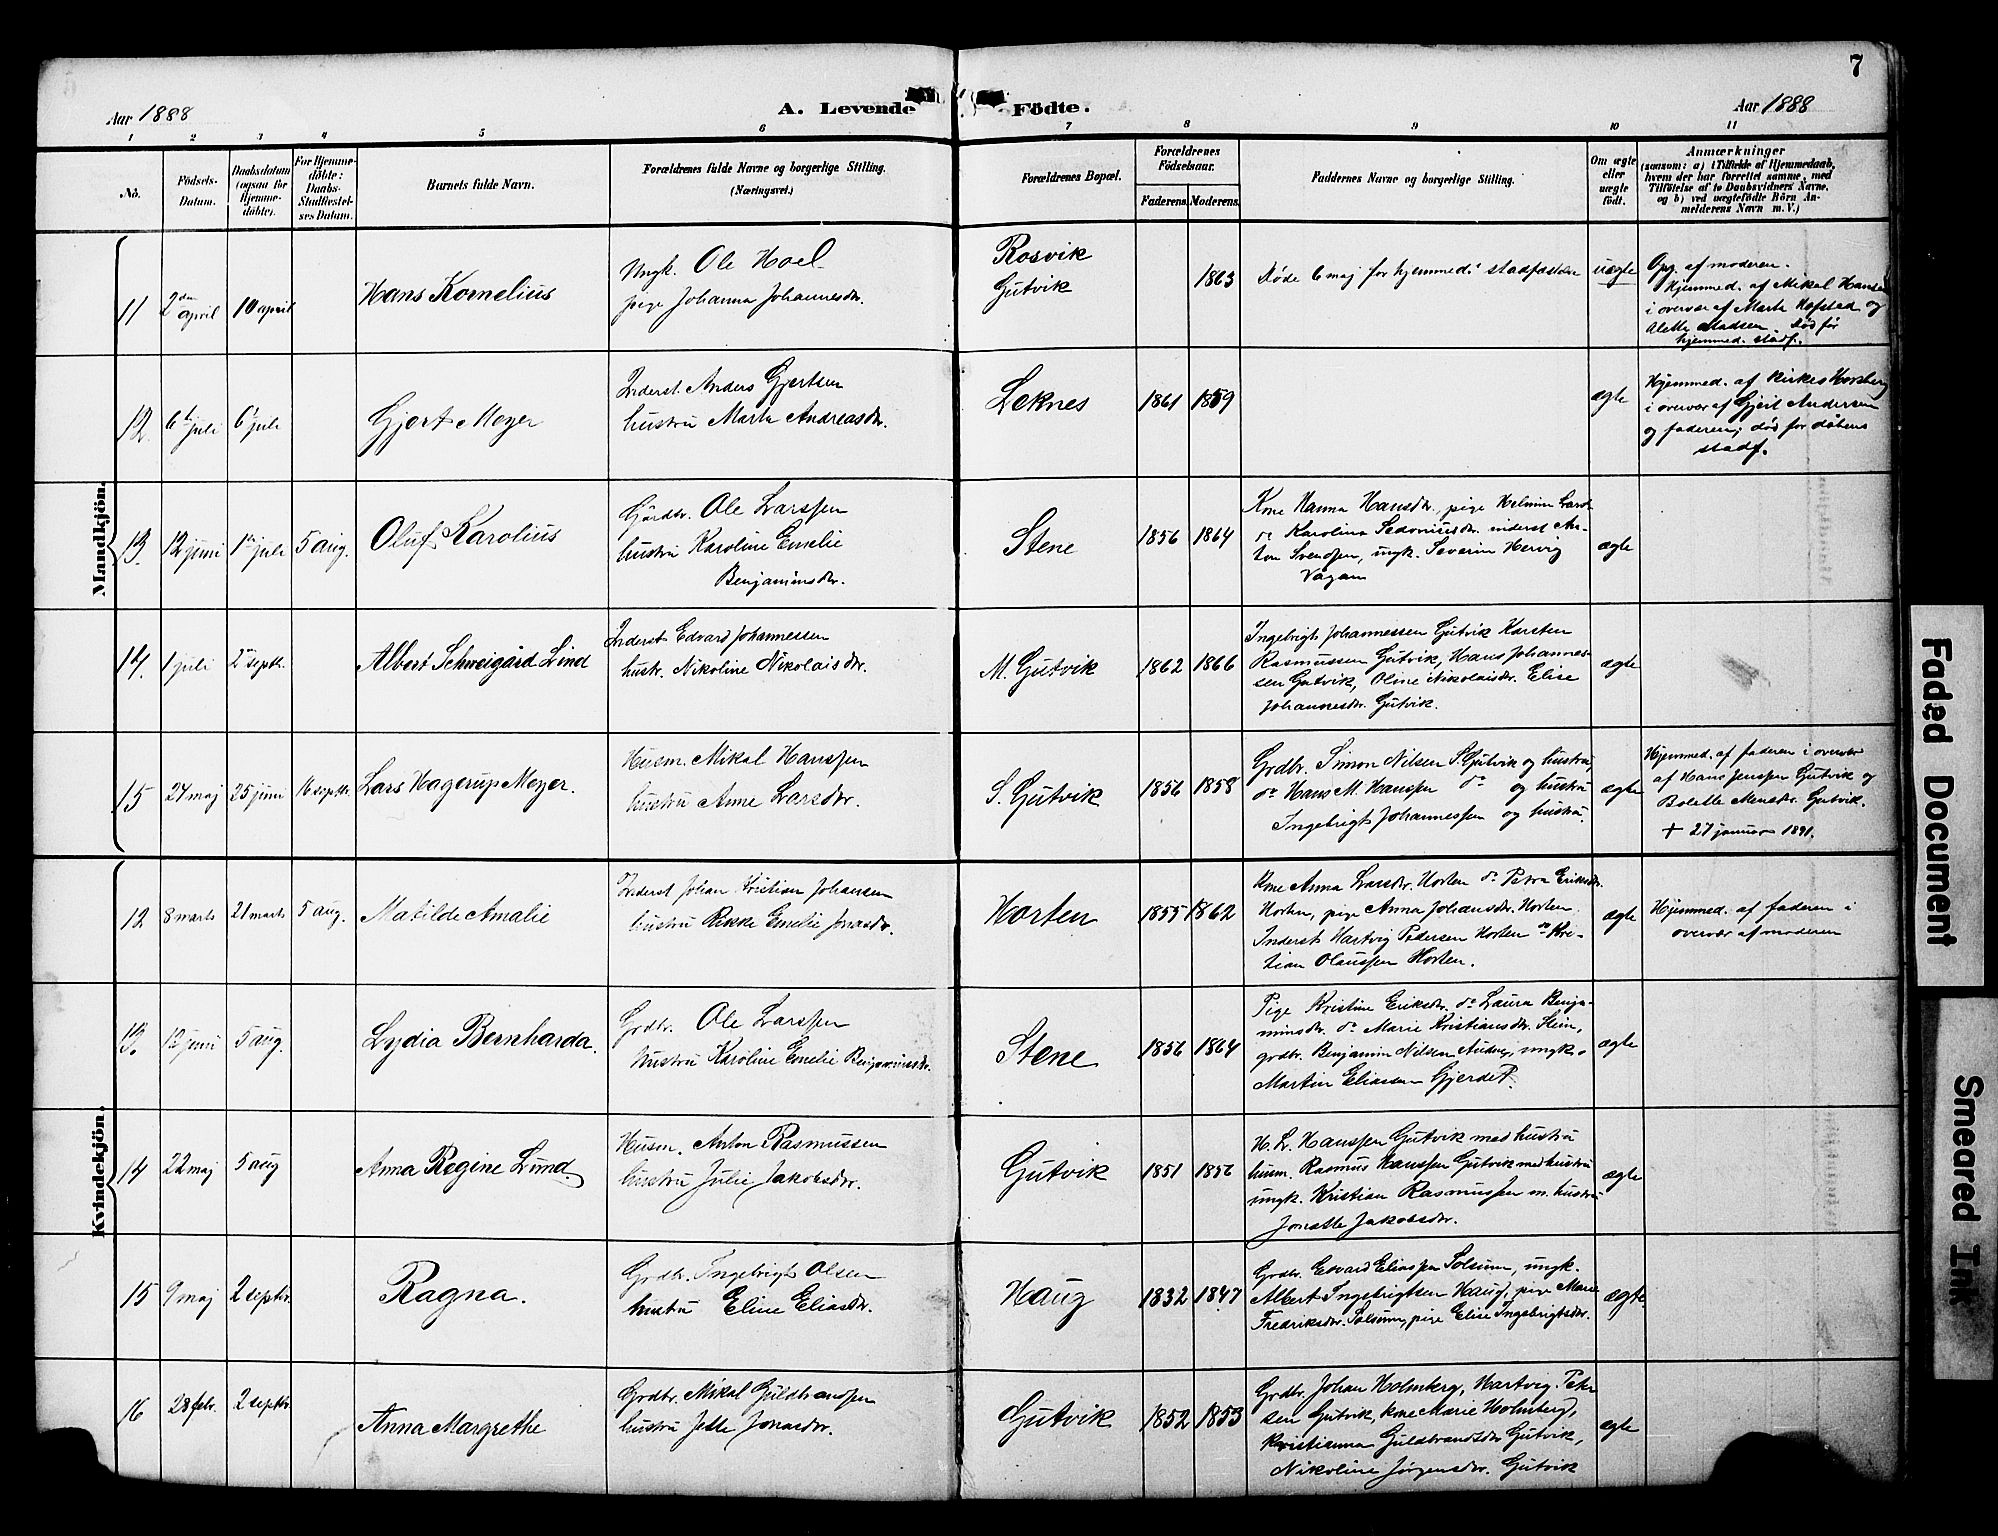 7
Aar 1888
A. Levende Födte.
Aar 1888
1 2 3 4 5 6 7 8 9 10 11
No.
Födsels-
Datum.
Daabsdatum
(ogsaa for
Hjemme-
döbte).
For Hjemme-
döbte:
Daabs-
Stadfæstel-
ses Datum.
Barnets fulde Navn.
Forældrenes fulde Navne og borgerlige Stilling.
(Næringsvei.)
Forældrenes Bopæl.
Forældrenes
Födselsaar.
Faderens. Moderens.
Faddernes Navne og borgerlige Stilling.
Om ægte
eller
uægte
födt.
Anmærkninger
(saasom: a) i Tilfælde af Hjemmedaab,
hvem der har forrettet samme, med
Tilföielse af to Daabsvidners Navne,
og b) ved uægtefödte Börn An-
melderens Navn m. V.)
Mandkjön.
11
2den april
10 april
Hans Kornelius
Ungk. Ole Hoel
pige Johanna Johannesdr.
Rosvik
Gutvik
1863
Døde 6 maj før hjemmed. stadfæstelse
uægte
Opg. af moderen.
Hjemmed. af Mikal Hansen
i overvær af Marta Hofstad og
Alette Madsen. Død før
hjemmed. stadf.
12.
6te juli
6te juli
Gjert Meyer
Inderst. Anders Gjertsen
hustru Marta Andreasdr.
Leknes
1861
1859
ægte
Hjemmed. af Kirkes Horsberg
i overvær af Gjert Andersen
og faderen; død før dåbens
stadf.
13.
12 juni
1ste juli
5 aug.
Oluf Karolius
Gårdbr. Ole Larssen
hustru Karoline Emelie
Benjaminsdr.
Stene
1856
1864
Kone Hanna Hansdr., pige Helmine Larsd.
do Karolina Sedoniusdr. inderst An-
ton Svendsen, ungk. Severin Hervig
Vågan
ægte
14.
1 juli
2 septb.
Albert Schweigård Lind
Inderst Edvard Johannessen
hustr. Nikoline Nikolaisdr.
M. Gutvik
1862
1866
Ingebrigt Johannessen Gutvik Karsten
Rasmussen Gutvik, Hans Johannes-
sen Gutvik, Oline Nikolaisdr. Elise
Johannesdr. Gutvik.
ægte
15
24 maj
25 juni
16 septbr.
Lars Hagerup Meyer.
Husm. Mikal Hanssen
hustru Anne Larsdr.
S. Gutvik
1856
1858
Grdbr. Simon Nilsen S. Gutvik og hustru,
do Hans M. Hanssen do og hustru
Ingebrigt Johannessen og hustru.
ægte
Hjemmed. af faderen i overvær
af Hans Jenssen Gutvik og
Bolette Monsdr. Gutvik.
+ 27 januar 1891.
Kvindekjön.
12
8 marts
21 marts
5 aug.
Matilde Amalie
Inderst Johan Kristian Johansen
hustru Rikke Emelie Jonasdr.
Horten
1855
1862
Kone Anna Larsdr. Horten do Petra Eriksdr.
Horten, pige Anna Johansdr. Horten
Inderst Hartvig Pedersen Horten do Kri-
stian Olaussen Horten.
ægte
Hjemmed. af faderen i
overvær af moderen
13.
12 juni
5 aug.
Lydia Bernharda.
Grdbr. Ole Larssen
hustru Karoline Emelie Benjaminsdr.
Stene
1856
1864
Pige Kristine Eriksdr. do Laura Benja-
minsdr. do Marie Kristiansdr. Stein,
grdbr. Benjamin Nilsen, ungk.
Martin Eliassen Gjerdet.
ægte
14
22 maj
5 aug
Anna Regine Lund.
Husm. Anton Rasmussen
hustru Julie Jakobsdr.
Gutvik
1851
1856
H. L. Hanssen Gutvik med hustru
husm. Rasmus Hanssen Gutvik med hustru
ungk. Kristian Rasmussen m. hustru
Jonette Jakobsdr.
ægte
15
9 maj
2 septbr.
Ragna.
Grdbr. Ingebrigt Olsen
hustru Eline Eliasdr.
Haug
1832
1847
Grdbr. Edvard Eliassen Solsum, ungk.
Albert Ingebrigtsen Haug, pige Marie
Fredriksdr. Solsum, pige Elise Ingebrigtsdr.
ægte
16
28 febr.
2 septbr.
Anna Margrethe
Grdbr. Mikal Guldbranssen
hustru Jette Jonasdr.
Gutvik
1852
1853
Grdbr. Johan Holmberg, Hartvig Peter-
sen Gutvik, kone Marie Holmberg,
Kristianna Guldbrandsdr Gutvik,
Nikoline Jørgensdr. Gutvik
ægte
Faded Document
Smeared Ink